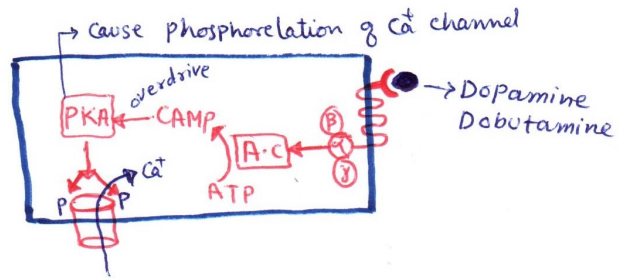 → Cause phosphorelation of Ca+ channel
overdrive
PKA ← CAMP
A.C
ATP
β
α
γ
→ Dopamine
Dobutamine
Ca+
P P